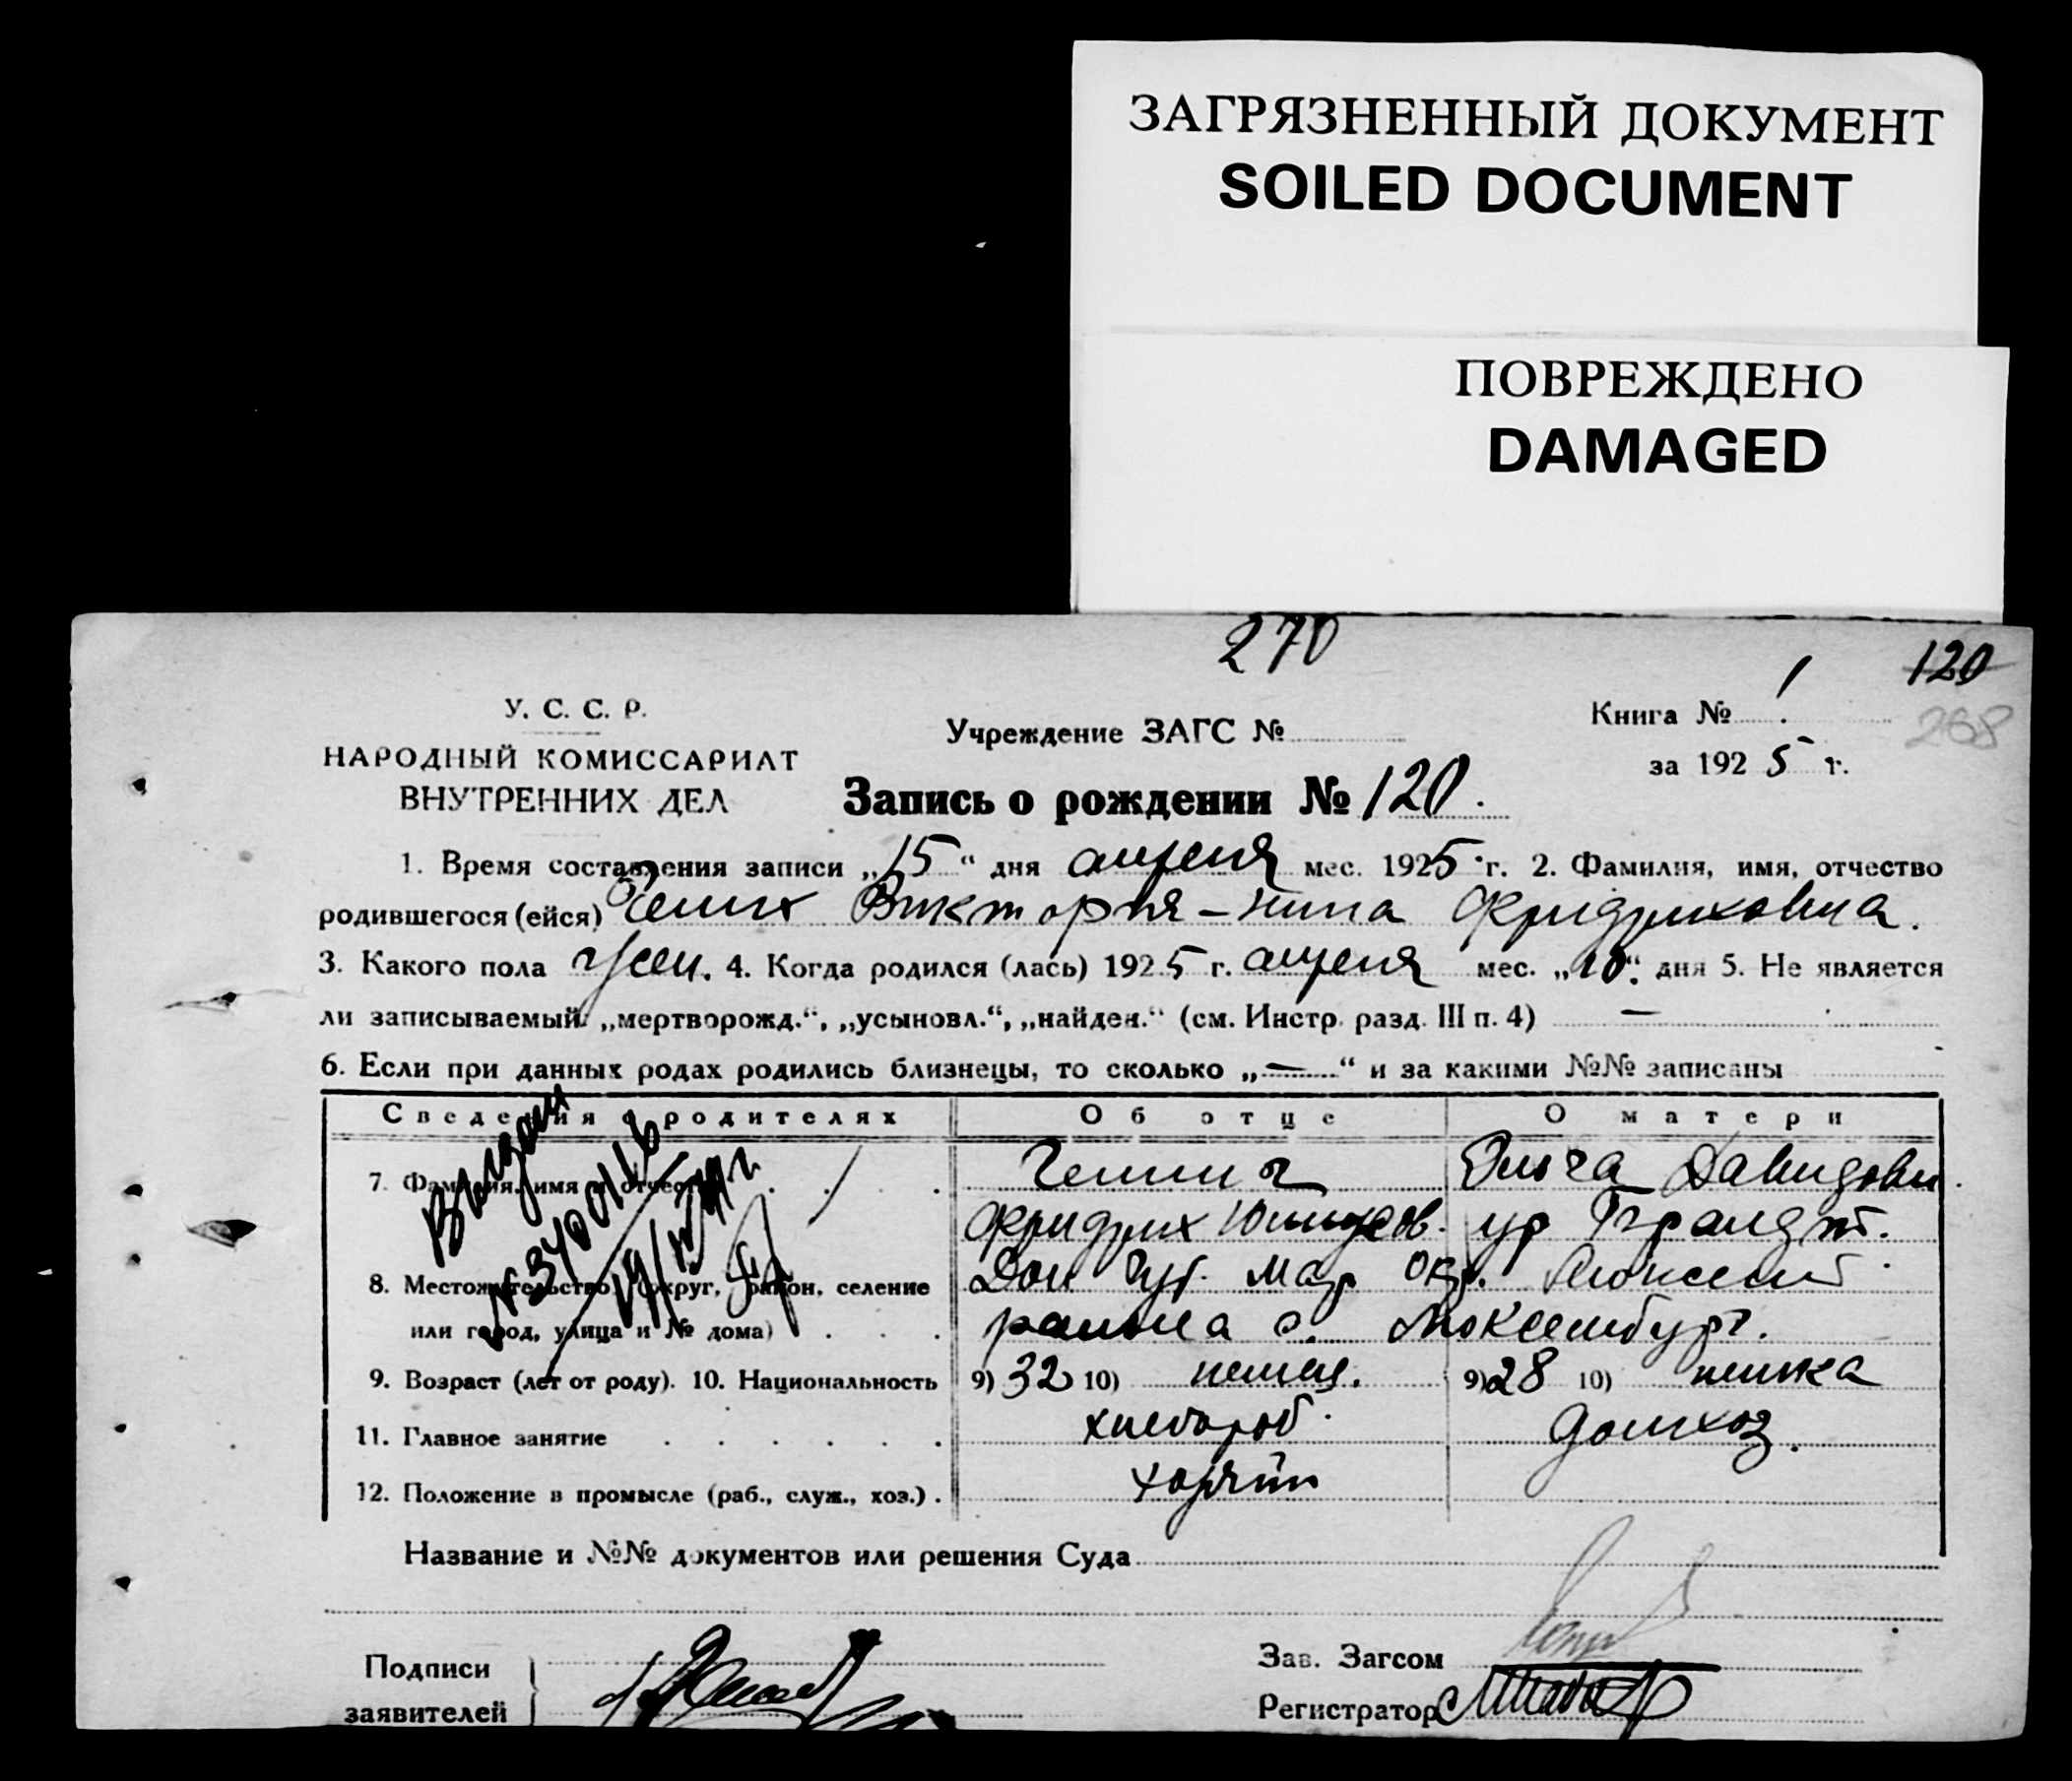 ЗАГРЯЗНЕННЫЙ ДОКУМЕНТ
SOILED DOCUMENT
ПОВРЕЖДЕНО
DAMAGED
270
120
У. С. С. Р.
НАРОДНЫЙ КОМИССАРИАТ
ВНУТРЕННИХ ДЕЛ
Учреждение ЗАГС №
Книга № 1
268
за 1925 г.
Запись о рождении № 120.
1. Время составления записи „15“ дня апреля мес. 1925 г. 2. Фамилия, имя, отчество
родившегося (ейся) Виктория-Нина Фридриховна.
3. Какого пола жен. 4. Когда родился (лась) 1925 г. апреля мес. „10“ дня 5. Не является
ли записываемый „мертворожд.“, „усыновл.“, „найден.“ (см. Инстр. разд. III п. 4) —
6. Если при данных родах родились близнецы, то сколько „—“ и за какими №№ записаны
Сведения о родителях Об отце О матери
7. Фамилия, имя и отчество Ольга Давидовн.
Фридрих ур Брандт.
8. Местожительство (округ, район, селение Дон Губ. Мар. Окр.
или город, улица и № дома) района с. Люксембург.
9. Возраст (лет от роду). 10. Национальность 9) 32 10) немец. 9) 28 10) немка
11. Главное занятие хлебороб. домхоз.
12. Положение в промысле (раб., служ., хоз.) хозяин
Выдан
Название и №№ документов или решения Суда
Подписи
заявителей
Зав. Загсом
Регистратор